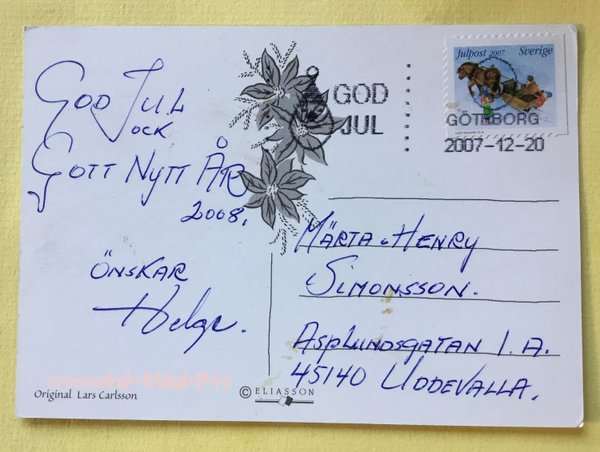 God Jul
och
Gott Nytt År
2008.
önskar
Helge.
Original Lars Carlsson
GOD
JUL
Julpost 2007 Sverige
GÖTEBORG
2007-12-20
Märta o Henry
Simonsson.
Asplundsgatan 1. A.
45140 Uddevalla.
© ELIASSON